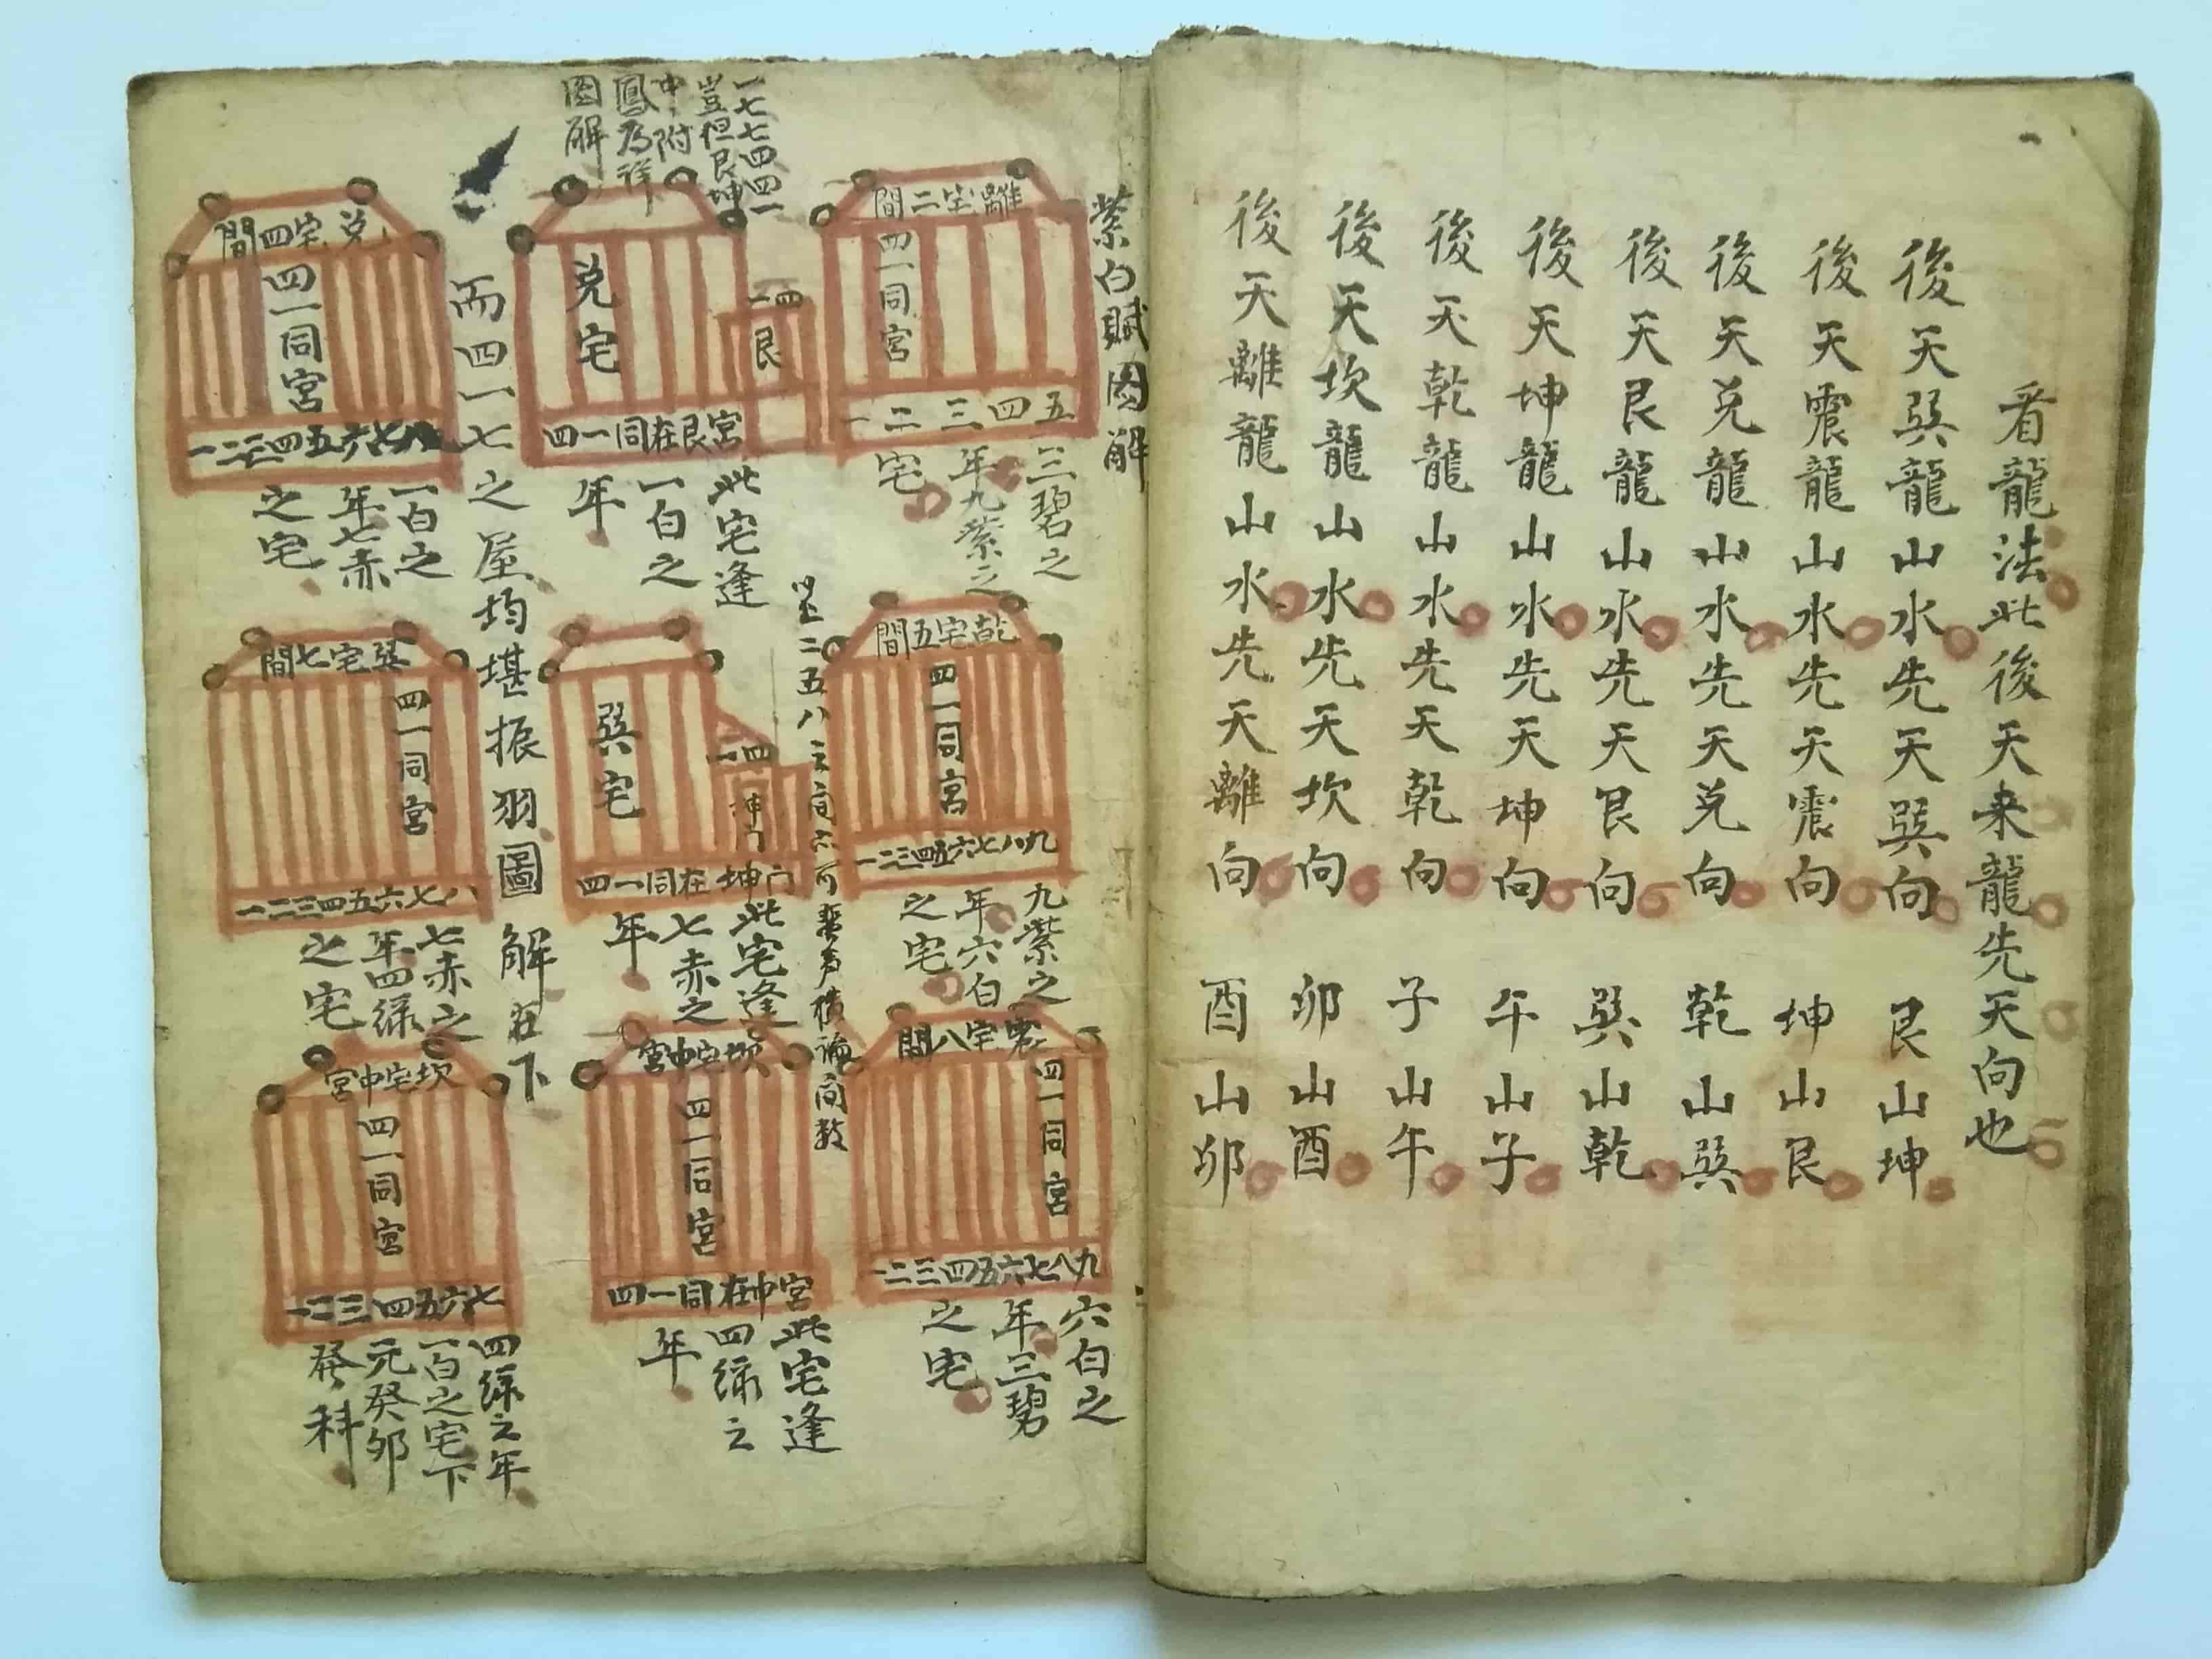 看龍法此後天来龍先天向也
後天巽龍山水先天巽向 艮山坤
後天震龍山水先天震向 坤山艮
後天兑龍山水先天兑向 乾山巽
後天艮龍山水先天艮向 巽山乾
後天坤龍山水先天坤向 午山子
後天乾龍山水先天乾向 子山午
後天坎龍山水先天坎向 卯山酉
後天離龍山水先天離向 酉山卯
紫白賦図解
離宅二間
四一同宮
一二三四五
三碧之
年九紫之
宅
乾宅五間
四一同宮
一二三四五六七八九
九紫之
年六白
之宅
震宅八間
四一同宮
一二三四五六七八九
六白之
年三碧
之宅
一七七四四一
豈但艮坤
中附
鳳乃詳
図解
兑宅
一四
艮
四一同在艮宮
此宅逢
一白之
年
以上二五八之間六可
横論間数
巽宅
一四
坤门
四一同在坤门
此宅逢
七赤之
年
坎宅中宮
四一同宮
四一同在中宮
此宅逢
四綠之
年
而四一七之屋均堪振羽圖解在下
兑宅四間
四一同宮
一二三四五六七八
一白之
年七赤
之宅
巽宅七間
四一同宮
一二三四五六七八
七赤之
年四綠
之宅
坎宅中宮
四一同宮
一二三四五六七
四綠之年
一白之宅下
元癸卯
發科